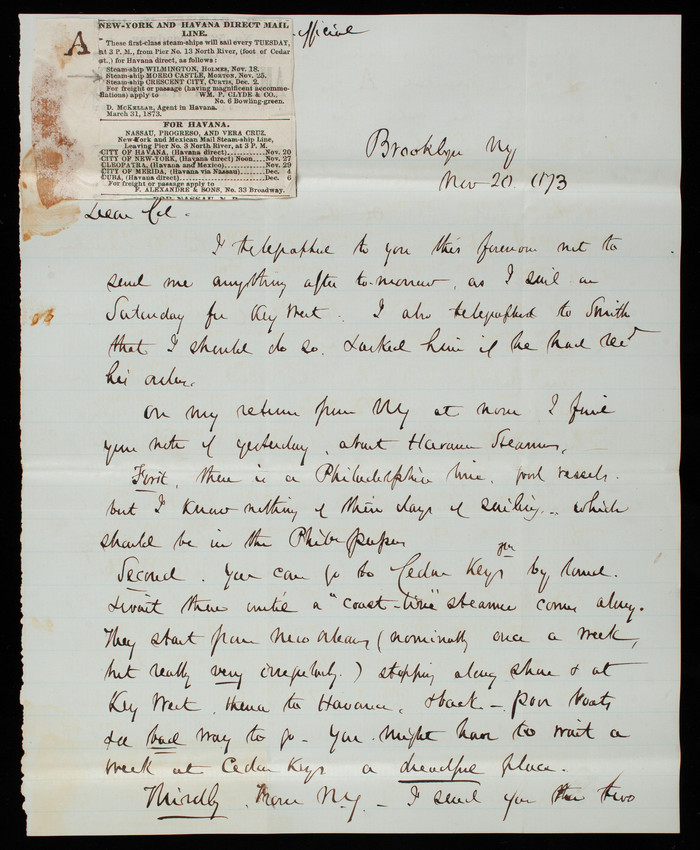 A
NEW-YORK AND HAVANA DIRECT MAIL
LINE.
These first-class steam-ships will sail every TUESDAY,
at 3 P. M., from Pier No. 13 North River, (foot of Cedar
st.,) for Havana direct, as follows:
Steam-ship WILMINGTON, HOLMES, Nov. 18.
Steam-ship MORRO CASTLE, MORTON, Nov. 25.
Steam-ship CRESCENT CITY, CURTIS, Dec. 2.
For freight or passage (having magnificent accommo-
dations) apply to WM. P. CLYDE & CO.,
No. 6 Bowling-green.
D. MCKELLAR, Agent in Havana.
March 31, 1873.
FOR HAVANA.
NASSAU, PROGRESO, AND VERA CRUZ.
New-York and Mexican Mail Steam-ship Line,
Leaving Pier No. 3 North River, at 3 P. M.
CITY OF HAVANA, (Havana direct)......Nov. 20
CITY OF NEW-YORK, (Havana direct) Noon....Nov. 27
CLEOPATRA, (Havana and Mexico)......Nov. 29
CITY OF MERIDA, (Havana via Nassau)......Dec. 4
CUBA, (Havana direct)......Dec. 6
For freight or passage apply to
F. ALEXANDRE & SONS, No. 33 Broadway.
official
Brooklyn NY
Nov 20 1873
Dear Col.
I telegraphed to you this forenoon not to
send me anything after to-morrow, as I sail on
Saturday for Key West. I also telegraphed to Smith
that I should do so. & asked him if he had rec'd
his orders.
On my return from NY at noon I find
your note of yesterday, about Havana Steamers.
First, there is a Philadelphia line, good vessels.
but I know nothing of their days of sailing.. which
should be in the Phila papers
Second. You can go to Cedar Keys by land.
& wait there until a "coast-line" steamer comes along.
They start from New Orleans, (nominally once a week,
but really very irregularly.) stopping along shore & at
Key West, thence to Havana, & back - poor boats
& a bad way to go - You might have to wait a
week at Cedar Keys a dreadful place.
Thirdly, from N.Y. - I send you the two